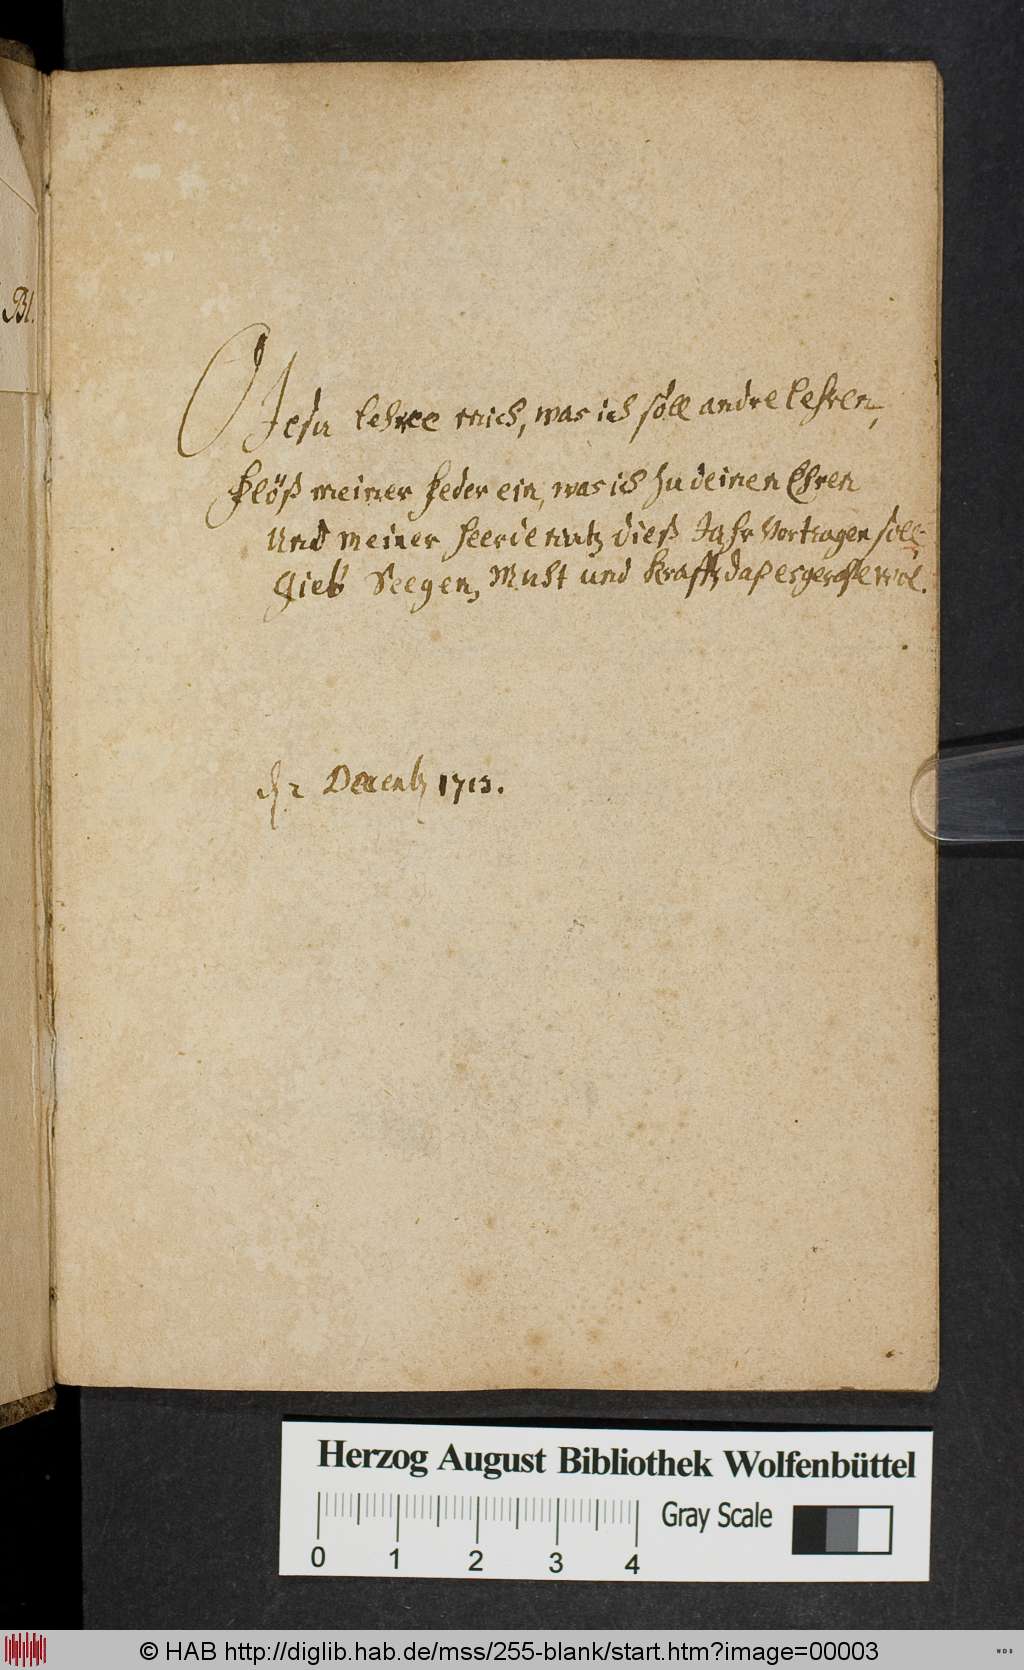 Bl.
O Jesu lehree mich, was ich soll andre lehren,
Flöß meiner Feder ein, was ich zu deinen Ehren
Und meiner Heerde nutz dieß Jahr Vortragen soll
Gieb Seegen, Muht und Krafft, daß es gerahte wol.
d 2 Decemb 1713.
Herzog August Bibliothek Wolfenbüttel
Gray Scale
0 1 2 3 4
© HAB http://diglib.hab.de/mss/255-blank/start.htm?image=00003